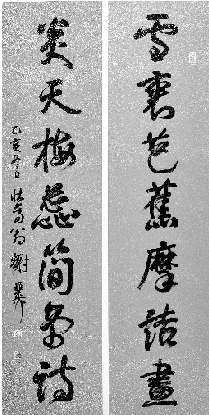 雪裏芭蕉摩詰畫
炎天梅蕊簡齋詩
乙亥 翁謝